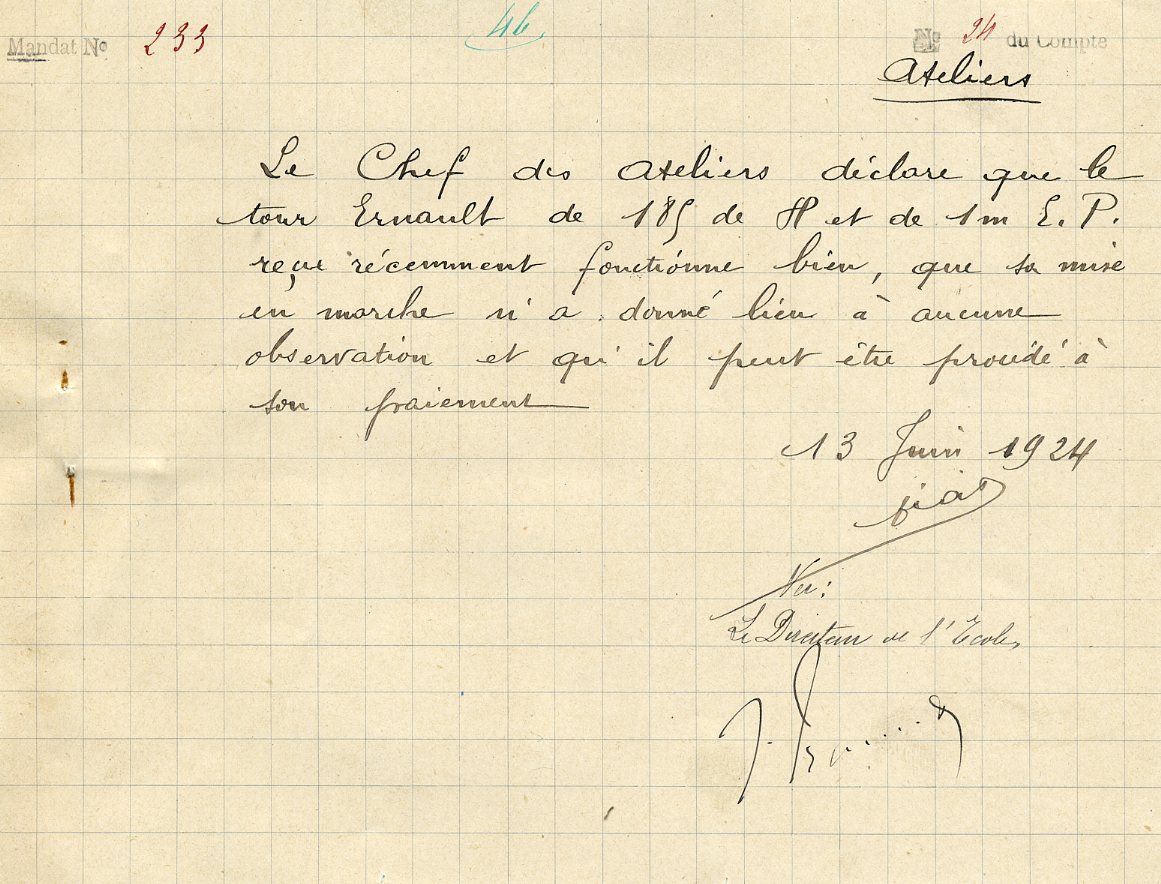 Mandat No 233
46
No 24 du Compte
Ateliers
Le Chef des Ateliers déclare que le
tour Ernault de 185 de H et de 1m E. P.
reçu récemment fonctionne bien, que sa mise
en marche n'a donné lieu à aucune
observation et qu'il peut être procédé à
son paiement
13 Juin 1924
Vu:
Le Directeur de l'Ecole,